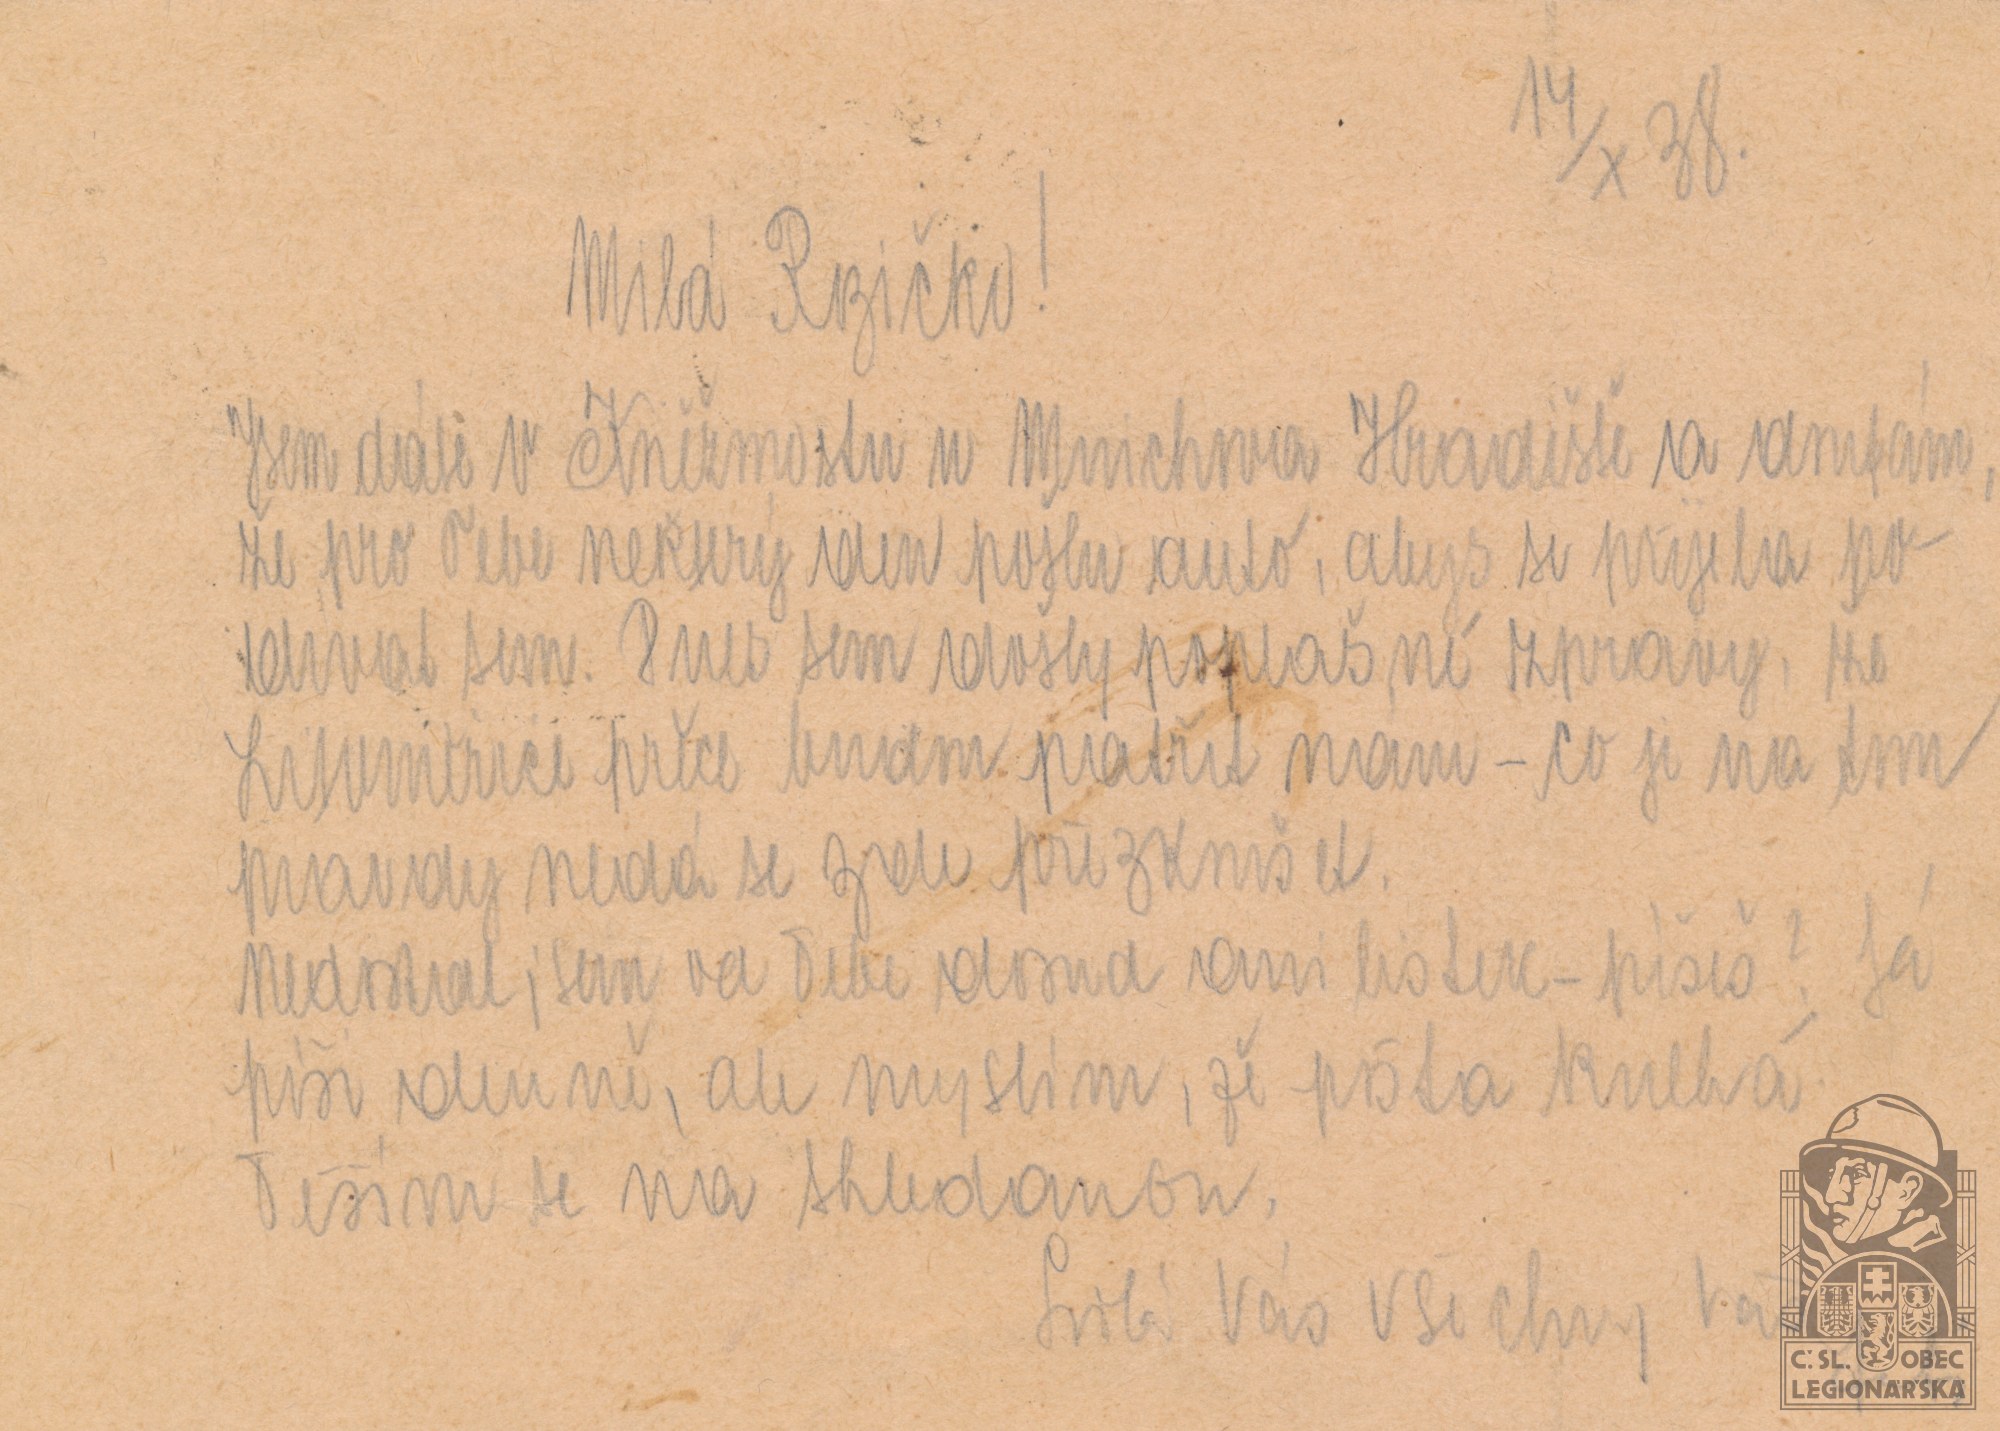 14/X 38.
Milá Rozičko!
Jsem dále v Kněžmostu u Mnichova Hradiště a doufám,
že pro Tebe některý den pošlu auto, abys se přijela po-
dívat sem. Dnes sem došly poplašné zprávy, že
Litoměřice přece budou patřit nám – co je na tom
pravdy nedá se zde přezkoušet.
Nedostal jsem od Tebe dosud ani lístek – píšeš? Já
píši denně, ale myslím, že pošta kulhá
Těším se na shledanou.
Líbá Vás všechny Váš
Č.SL. OBEC
LEGIONÁŘSKÁ